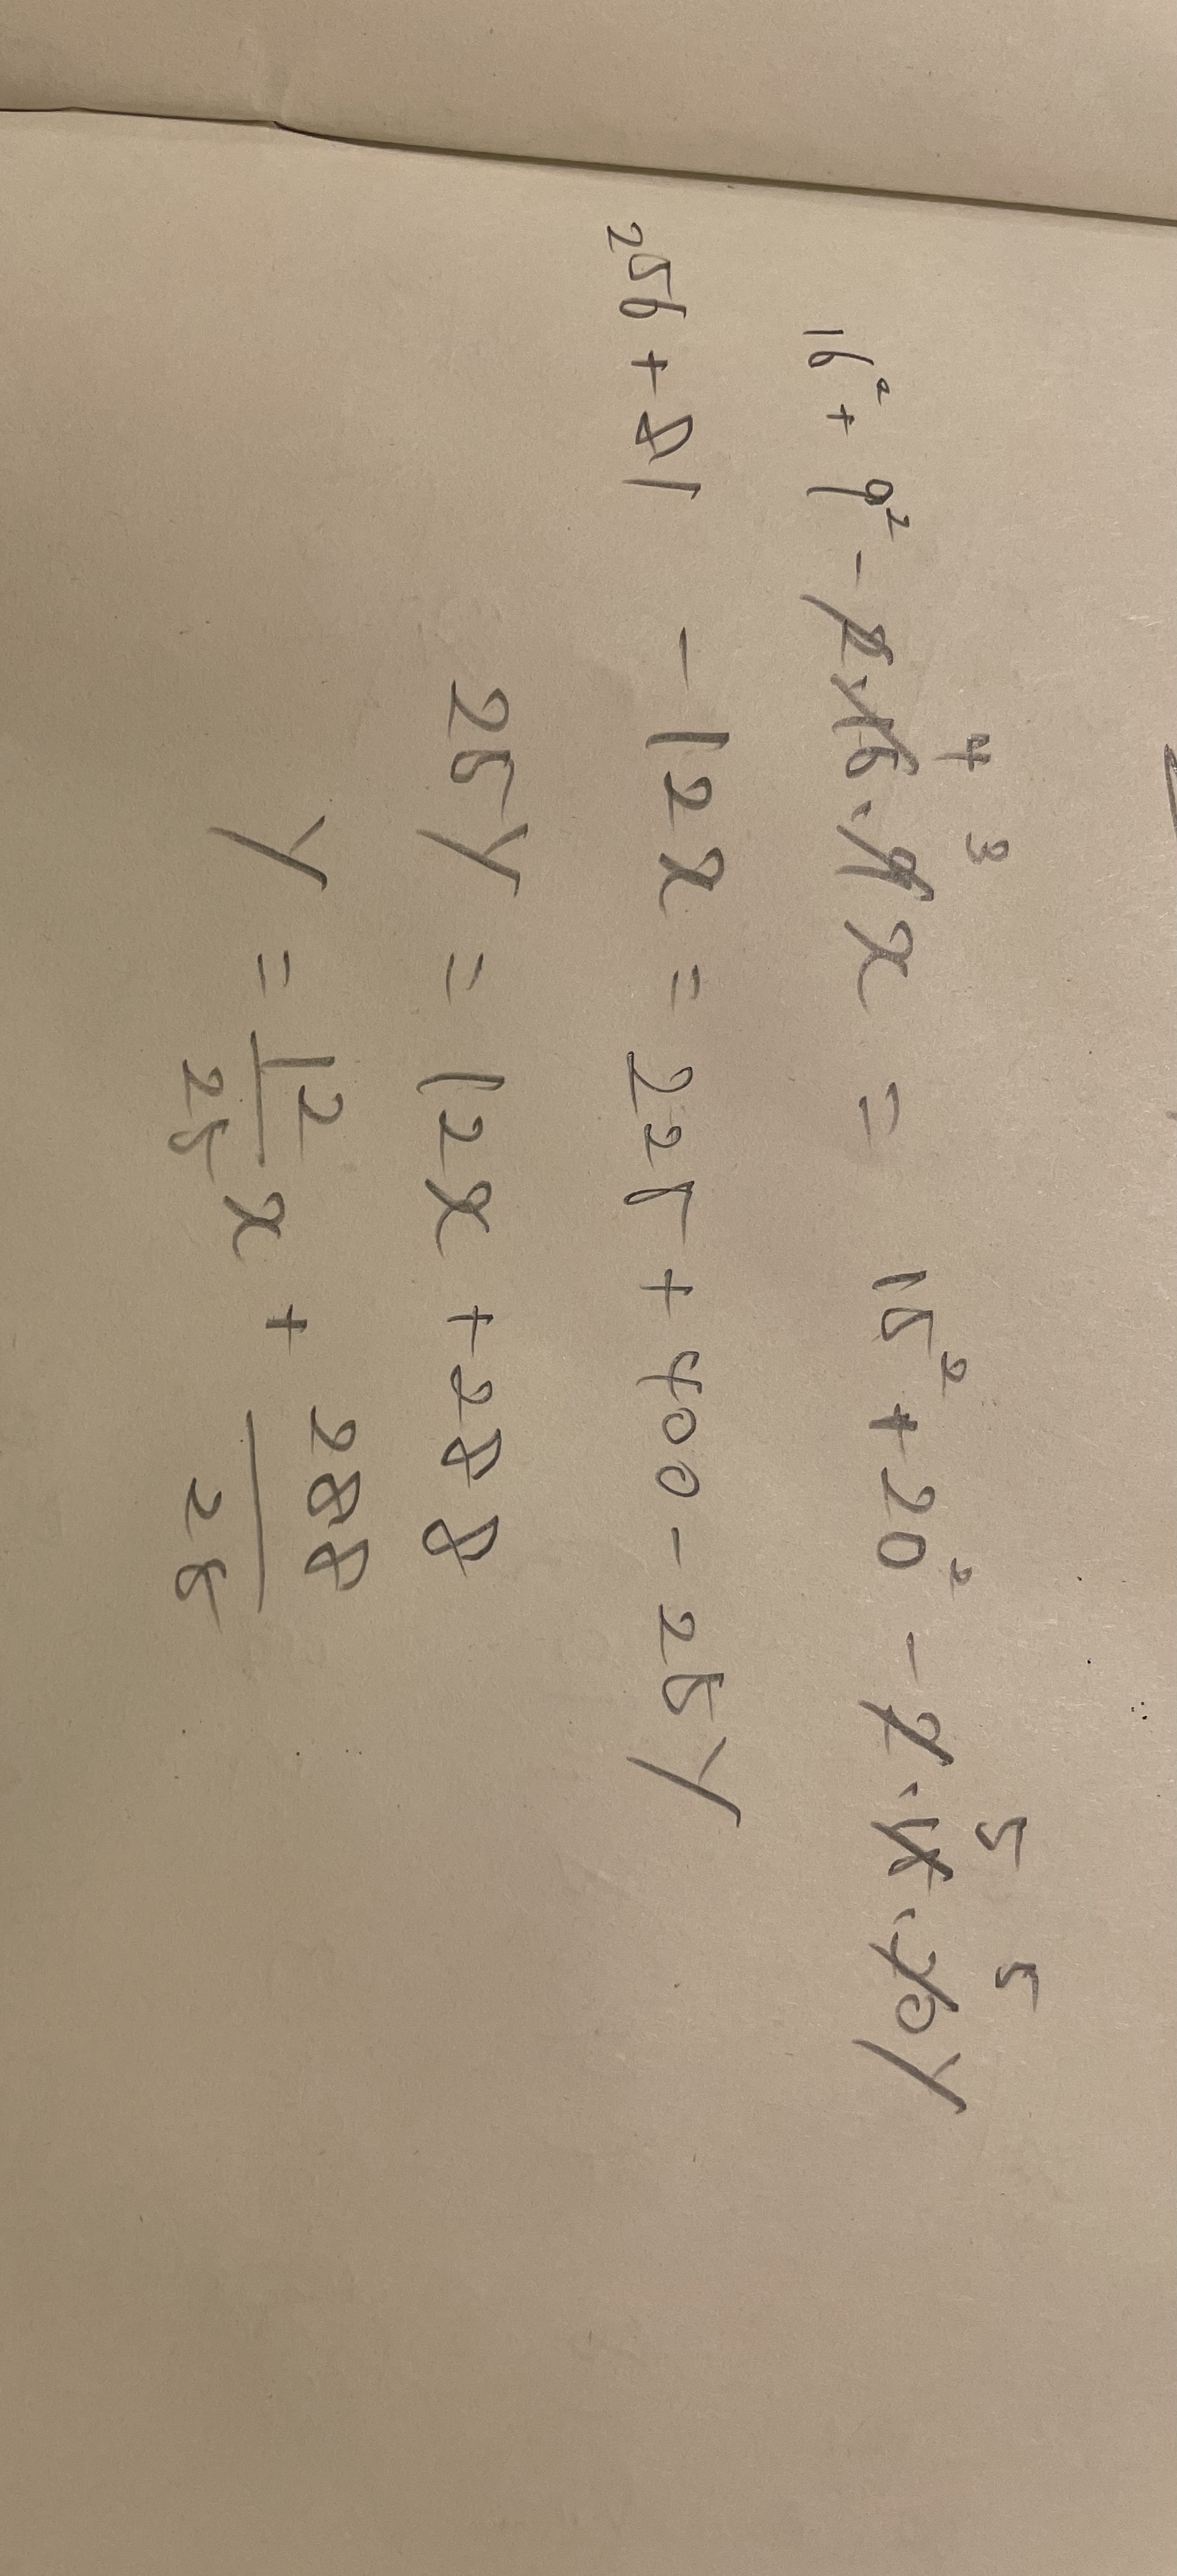 4 3 5 5
16² + 9² - 2·16·9x = 15² + 20² - 2·15·20y
256 + 81 - 12x = 225 + 400 - 25y
25y = 12x + 288
y = 12/25 x + 288/25